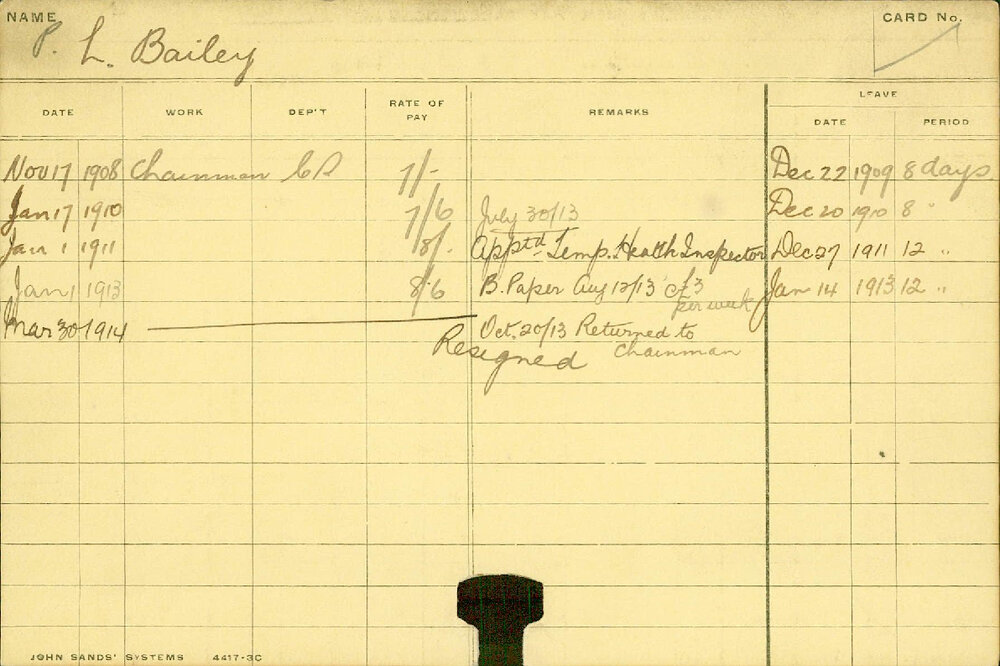 NAME
CARD No.
P. L. Bailey
DATE WORK DEP'T RATE OF PAY REMARKS LEAVE
DATE PERIOD
Nov 17 1908 Chainman 7/- Dec 22 1909 8 days
Jan 17 1910 7/6 July 30/13 Dec 20 1910 8 "
Jan 1 1911 8/- Apptd Temp. Health Inspector Dec 27 1911 12 "
Jan 1 1913 8/6 B. Paper Aug 12/13 £3 Jan 14 1913 12 "
per week
Mar 30 1914 Oct. 20/13 Returned to
Resigned Chainman
JOHN SANDS' SYSTEMS 4417-3C